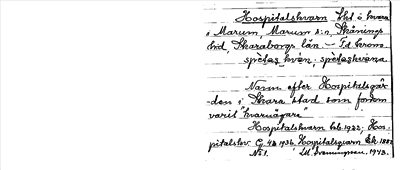 Hospitalskvarn Lht o kvarn
i Marum, Marum s:n, Skånings
hd, Skaraborgs län. – F.d. krono
spetas kvén, spetaskvéna
Namn efter Hospitalsgår-
den i Skara stad som fordom
varit "kvarnägare"
Hospitalskvarn Jrb 1922; Hos-
pitalskv. G. 43 1936. Hospitalsqvarn Ek. 1882
No 1. 1943.